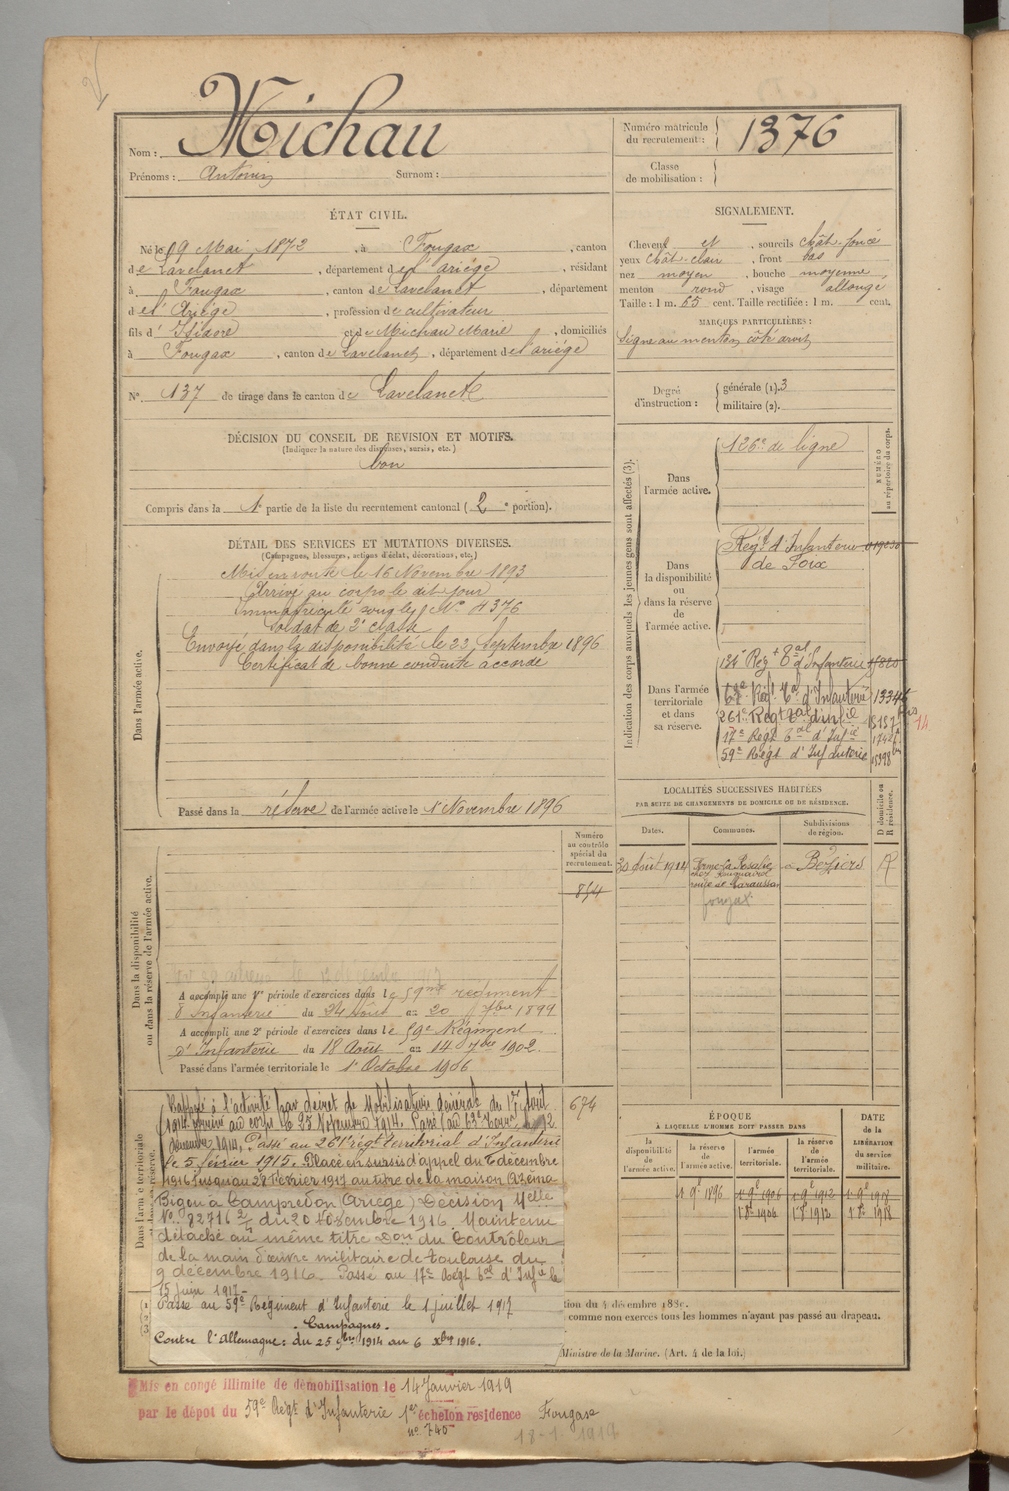 Michau
Nom :
Prénoms : Antonin Surnom :
Numéro matricule du recrutement : 1376
Classe de mobilisation :
ÉTAT CIVIL.
Né le 9 Mai 1872, à Fougax, canton
de Lavelanet, département de l'ariège, résidant
à Fougax, canton de Lavelanet, département
de l'Ariège, profession de cultivateur
fils d' Isidore et de Michau Marie, domiciliés
à Fougax, canton de Lavelanet, département de l'ariège
N° 137 de tirage dans le canton de Lavelanet
SIGNALEMENT.
Cheveux et, sourcils chât. foncé
yeux chât. clair, front bas
nez moyen, bouche moyenne,
menton rond, visage allongé
Taille : 1 m. 65 cent. Taille rectifiée : 1 m. cent.
MARQUES PARTICULIÈRES :
Signe au menton côté droit
Degré d'instruction : générale (1). 3
militaire (2).
DÉCISION DU CONSEIL DE REVISION ET MOTIFS.
(Indiquer la nature des dispenses, sursis, etc.)
bon
Compris dans la 1e partie de la liste du recrutement cantonal (2e portion).
DÉTAIL DES SERVICES ET MUTATIONS DIVERSES.
(Campagnes, blessures, actions d'éclat, décorations, etc.)
Dans l'armée active.
Mis en route le 16 Novembre 1893
Arrivé au corps le dit jour
Immatriculé sous le N° 4376
Soldat de 2e classe
Envoyé dans la disponibilité le 23 Septembre 1896
Certificat de bonne conduite accordé
Passé dans la réserve de l'armée active le 1 Novembre 1896
Indication des corps auxquels les jeunes gens sont affectés (3).
NUMÉRO au répertoire du corps.
Dans l'armée active.
126e de ligne
Dans la disponibilité ou dans la réserve de l'armée active.
Régt d'Infanterie
de Foix
Dans l'armée territoriale et dans sa réserve.
134e Rég t al d'Infanterie
67e Régt tal d'Infanterie
261e Régt tal d'Inf
17e Régt tal d'Infie
59e Régt d'Infanterie
14
LOCALITÉS SUCCESSIVES HABITÉES
PAR SUITE DE CHANGEMENTS DE DOMICILE OU DE RÉSIDENCE.
Dates. Communes. Subdivisions de région. D domicile ou R résidence.
Ferme la Rosalie Béziers R
chez
route de Maraussan
fougax
Numéro au contrôle spécial du recrutement.
854
Dans la disponibilité ou dans la réserve de l'armée active.
A accompli une 1re période d'exercices dans le 59me régiment
d'Infanterie du 24 Août au 20 7bre 1899
A accompli une 2e période d'exercices dans le 59e Régiment
d'Infanterie du 18 Août au 14 7bre 1902.
Passé dans l'armée territoriale le 1 Octobre 1906
Dans l'armée territoriale
674
Rappelé à l'activité par décret de Mobilisation Générale du 1er Août
1914. Arrivé au corps le 25 Novembre 1914. Passé au
décembre 1914. Passé au 261e régt territorial d'Infanterie
le 5 février 1915. Placé en sursis d'appel du 7 décembre
1916 jusqu'au 28 Février 1917 au titre de la maison Azéma
Bigou à Campredon (Ariège) Décision Melle
N° 82716 du 20 Novembre 1916. Maintenu
détaché au même titre Don du Contrôleur
de la main d'œuvre militaire de Toulouse du
9 décembre 1916. Passé au 17e Régt tal d'Infie le
15 juin 1917.
Passé au 59e Régiment d'Infanterie le 1 juillet 1917
Campagnes.
Contre l'Allemagne : du 25 9bre 1914 au 6 Xbre 1916.
ÉPOQUE
À LAQUELLE L'HOMME DOIT PASSER DANS
la disponibilité de l'armée active. la réserve de l'armée active. l'armée territoriale. la réserve de l'armée territoriale.
DATE DE LA LIBÉRATION du service militaire.
1 9e 1896 1 9e 1906 1 9e 1912 1 9e 1918
1 8e 1906 1 8e 1912 1 8e 1918
tion du 4 décembre 188
comme non exercés tous les hommes n'ayant pas passé au drapeau.
Ministre de la Marine. (Art. 4 de la loi.)
Mis en congé illimité de démobilisation le 14 Janvier 1919
par le dépôt du 59e Régt d'Infanterie 1er échelon résidence Fougax
n° 740
18-1-1919